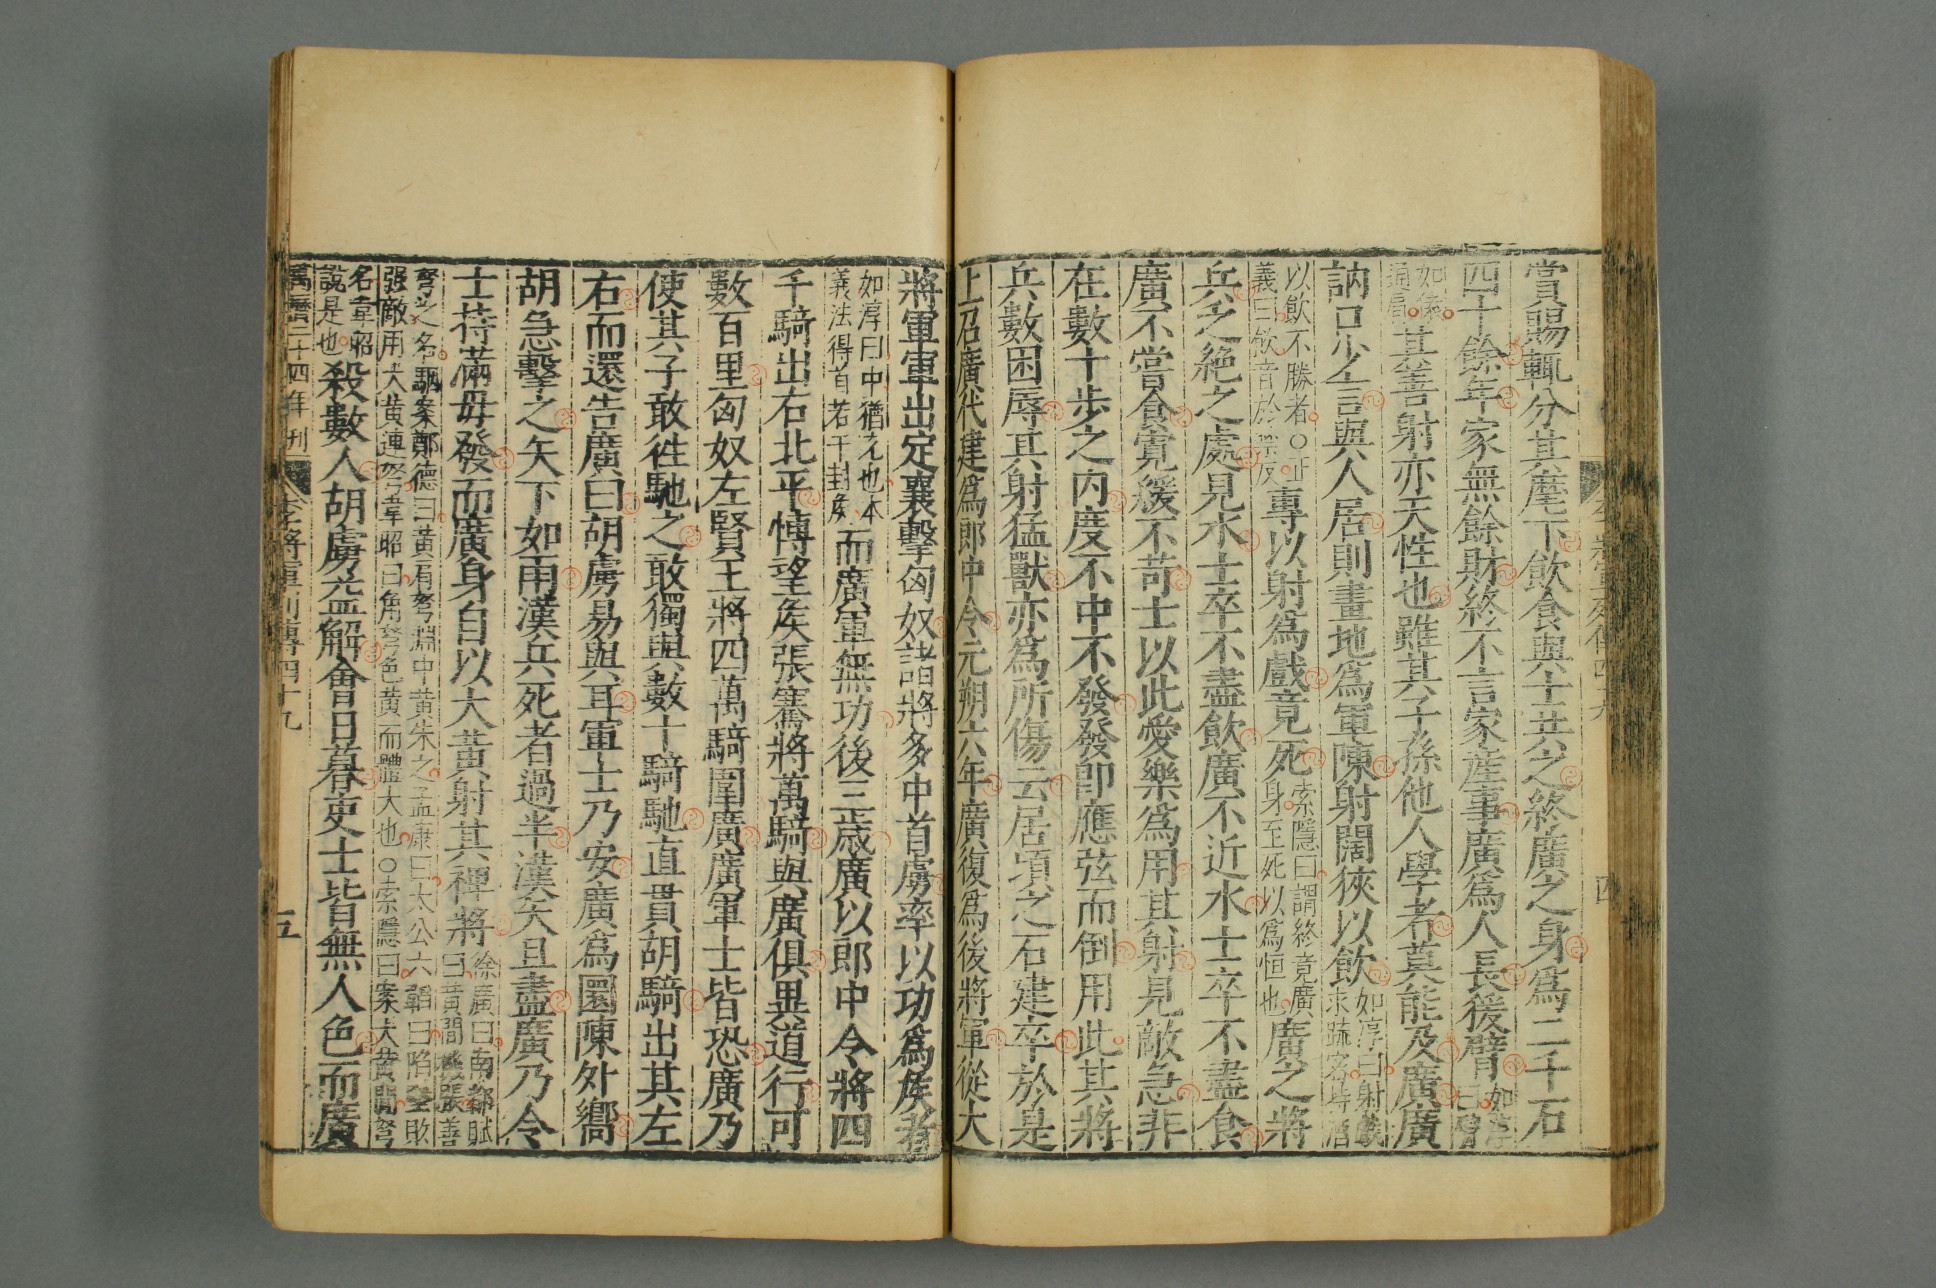 賞賜輒分其麾下飲食與士共之終廣之身爲二千石
四十餘年家無餘財終不言家產事廣爲人長猨臂如淳曰臂
如猨通肩其善射亦天性也雖其子孫他人學者莫能及廣廣
訥口少言與人居則畫地爲軍陳射闊狹以飲如淳曰射戲求疏密持酒
以飲不勝者○正義曰飲音於禁反專以射爲戲竟死索隱曰謂終竟廣身至死以爲恒也廣之將
兵乏絶之處見水士卒不盡飲廣不近水士卒不盡食
廣不嘗食寬緩不苛士以此愛樂爲用其射見敵急非
在數十步之內度不中不發發即應弦而倒用此其將
兵數困辱其射猛獸亦爲所傷云居頃之石建卒於是
上召廣代建爲郎中令元朔六年廣復爲後將軍從大
將軍軍出定襄擊匈奴諸將多中首虜率以功爲侯者
如淳曰中猶充也本義法得首若干封侯而廣軍無功後三歲廣以郎中令將四
千騎出右北平博望侯張騫將萬騎與廣俱異道行可
數百里匈奴左賢王將四萬騎圍廣廣軍士皆恐廣乃
使其子敢往馳之敢獨與數十騎馳直貫胡騎出其左
右而還告廣曰胡虜易與耳軍士乃安廣爲圜陳外嚮
胡急擊之矢下如雨漢兵死者過半漢矢且盡廣乃令
士持滿毋發而廣身自以大黃射其裨將徐廣曰南都賦曰黃間機張善
弩之名駰案鄭德曰黃肩弩淵中黃朱之孟康曰太公六韜曰陷堅敗
強敵用大黃連弩韋昭曰角弩色黃而體大也○索隱曰案大黃黃間弩
名韋昭說是也殺數人胡虜益解會日暮吏士皆無人色而廣
萬曆二十四年刊 李將軍列傳四十九 五